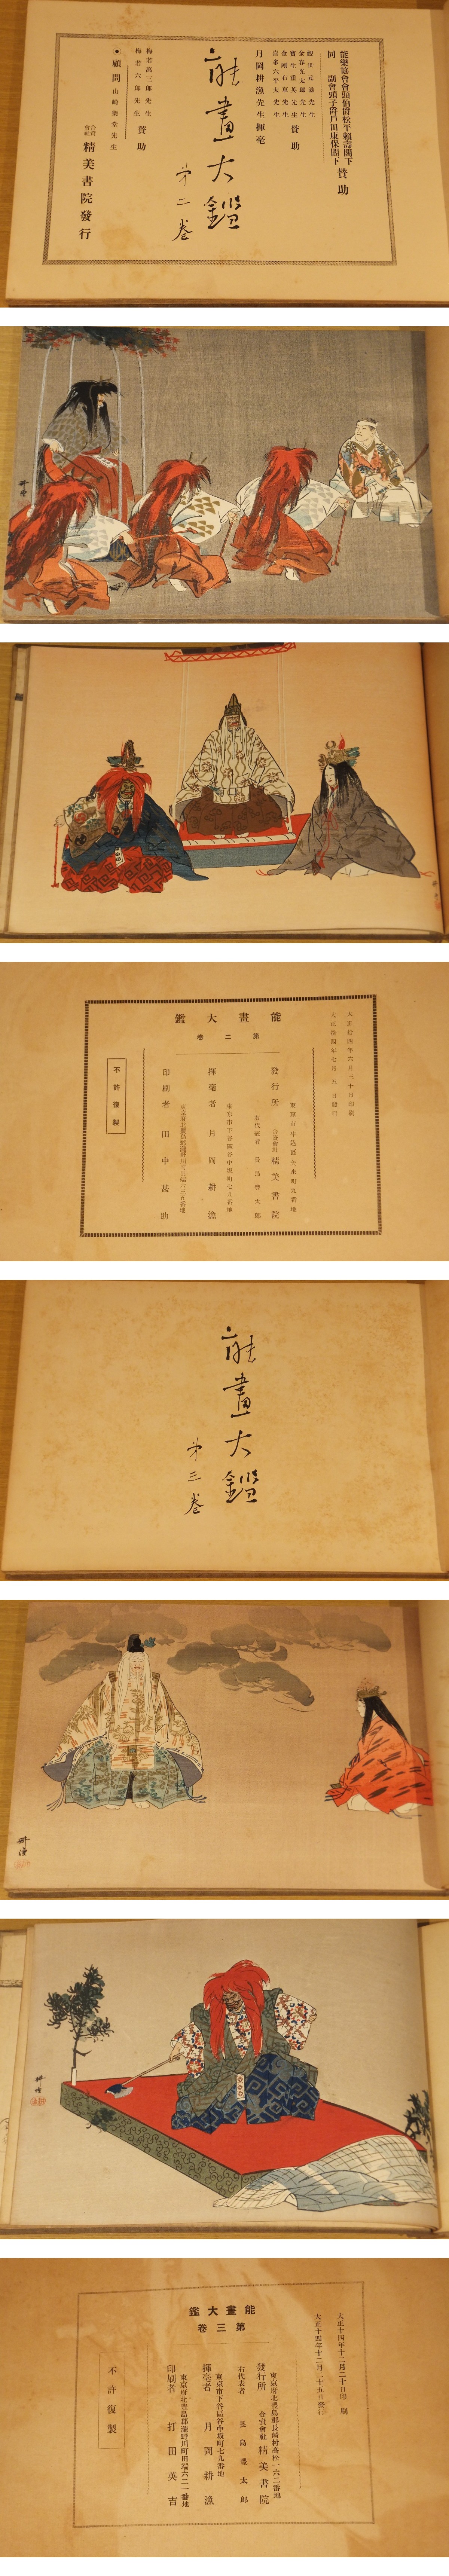 能樂協會會頭伯爵松平賴壽閣下
同　副會頭子爵戶田康保閣下
賛助
觀世元滋先生
金春光太郎先生
寶生重英先生
金剛右京先生
喜多六平太先生
賛助
月岡耕漁先生揮毫
能畫大鑑
第二巻
梅若萬三郎先生
梅若六郎先生
賛助
顧問 山崎樂堂先生
合資會社 精美書院發行
耕漁
大正拾四年六月三十日印刷
大正拾四年七月五日發行
能畫大鑑
第二卷
東京市牛込區矢來町九番地
發行所 合資會社 精美書院
右代表者 長島豐太郎
東京市下谷區谷中坂町七九番地
揮毫者 月岡耕漁
印刷者 田中甚助
不許復製
能畫大鑑
第三巻
耕漁
耕漁
大正十四年十二月二十日印刷
大正十四年十二月二十五日發行
能畫大鑑
第三卷
東京府北豊島郡長崎村高松一六二番地
發行所 合資會社 精美書院
右代表者 長島豐太郎
東京市下谷區谷中坂町七九番地
揮毫者 月岡耕漁
東京府北豊島郡瀧野川町田端六二一番地
印刷者 打田英吉
不許復製